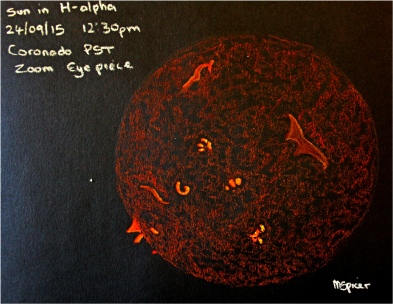 Sun in H-alpha
24/09/15 12:30pm
Coronado PST
Zoom Eyepiece
MSpicer